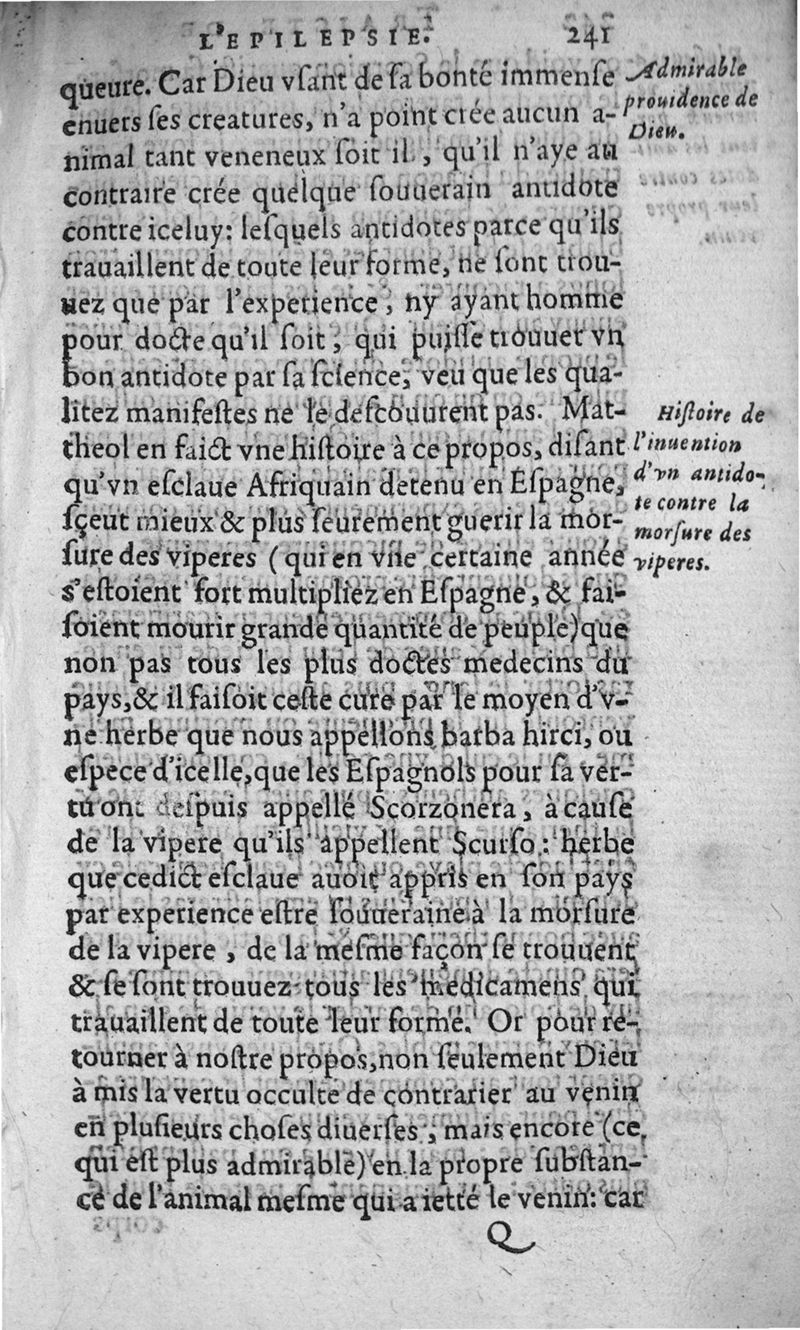 L'EPILEPSIE. 241
queure. Car Dieu vſant de ſa bonté immenſe
enuers ſes creatures, n'a point crée aucun a-
nimal tant veneneux ſoit il, qu'il n'aye au
contraire crée quelque ſouuerain antidote
contre iceluy: leſquels antidotes parce qu'ils
trauaillent de toute leur forme, ne ſont trou-
uez que par l'experience, ny ayant homme
pour docte qu'il ſoit, qui puiſſe trouuer vn
bon antidote par ſa ſcience, veu que les qua-
litez manifeſtes ne le deſcouurent pas. Mat-
theol en faict vne hiſtoire à ce propos, diſant
qu'vn eſclaue Afriquain detenu en Eſpagne,
ſçeut mieux & plus ſeurement guerir la mor-
ſure des viperes (qui en vne certaine année
s'eſtoient fort multipliez en Eſpagne, & fai-
ſoient mourir grande quantité de peuple) que
non pas tous les plus doctes medecins du
pays, & il faiſoit ceſte cure par le moyen d'v-
ne herbe que nous appellons barba hirci, ou
eſpece d'icelle, que les Eſpagnols pour ſa ver-
tu ont deſpuis appellé Scorzonera, à cauſe
de la vipere qu'ils appellent Scurſo: herbe
que cedict eſclaue auoit appris en ſon pays
par experience eſtre ſouueraine à la morſure
de la vipere, de la meſme façon ſe trouuent
& ſe ſont trouuez tous les medicamens qui
trauaillent de toute leur forme. Or pour re-
tourner à noſtre propos, non ſeulement Dieu
à mis la vertu occulte de contrarier au venin
en pluſieurs choſes diuerſes, mais encore (ce
qui eſt plus admirable) en la propre ſubſtan-
ce de l'animal meſme qui a ietté le venin: car
Q
Admirable
prouidence de
Dieu.
Hiſtoire de
l'inuention
d'vn antido-
te contre la
morſure des
viperes.